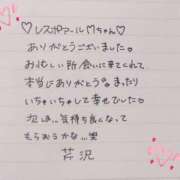 ♡レスポアール♡ちゃん♡
ありがとうございました。
お忙しい所会いに来てくれて
本当にありがとう。まったり
いちゃいちゃして幸せでした。
次は…気持ち良くなって
もらおうかな…笑
芹沢